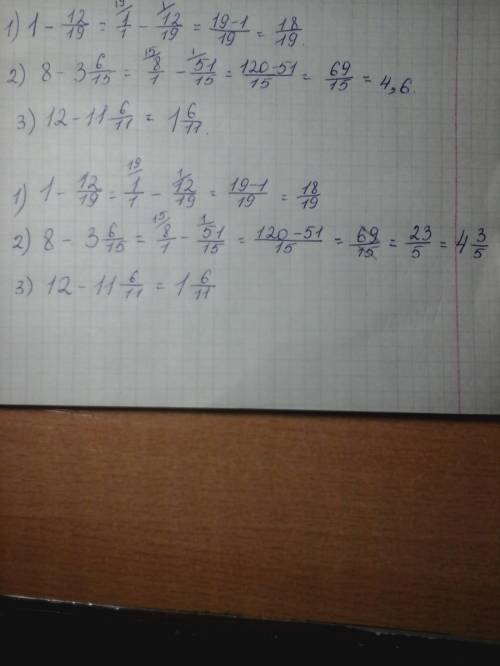 1) 1 - 12/19 = 19/ 1/1 - 1/ 12/19 = 19-1/19 = 18/19.
2) 8 - 3 6/15 = 15/ 8/1 - 1/ 51/15 = 120-51/15 = 69/15 = 4,6.
3) 12 - 11 6/11 = 1 6/11.
1) 1 - 12/19 = 19/ 1/1 - 1/ 12/19 = 19-1/19 = 18/19
2) 8 - 3 6/15 = 15/ 8/1 - 1/ 51/15 = 120-51/15 = 69/15 = 23/5 = 4 3/5
3) 12 - 11 6/11 = 1 6/11